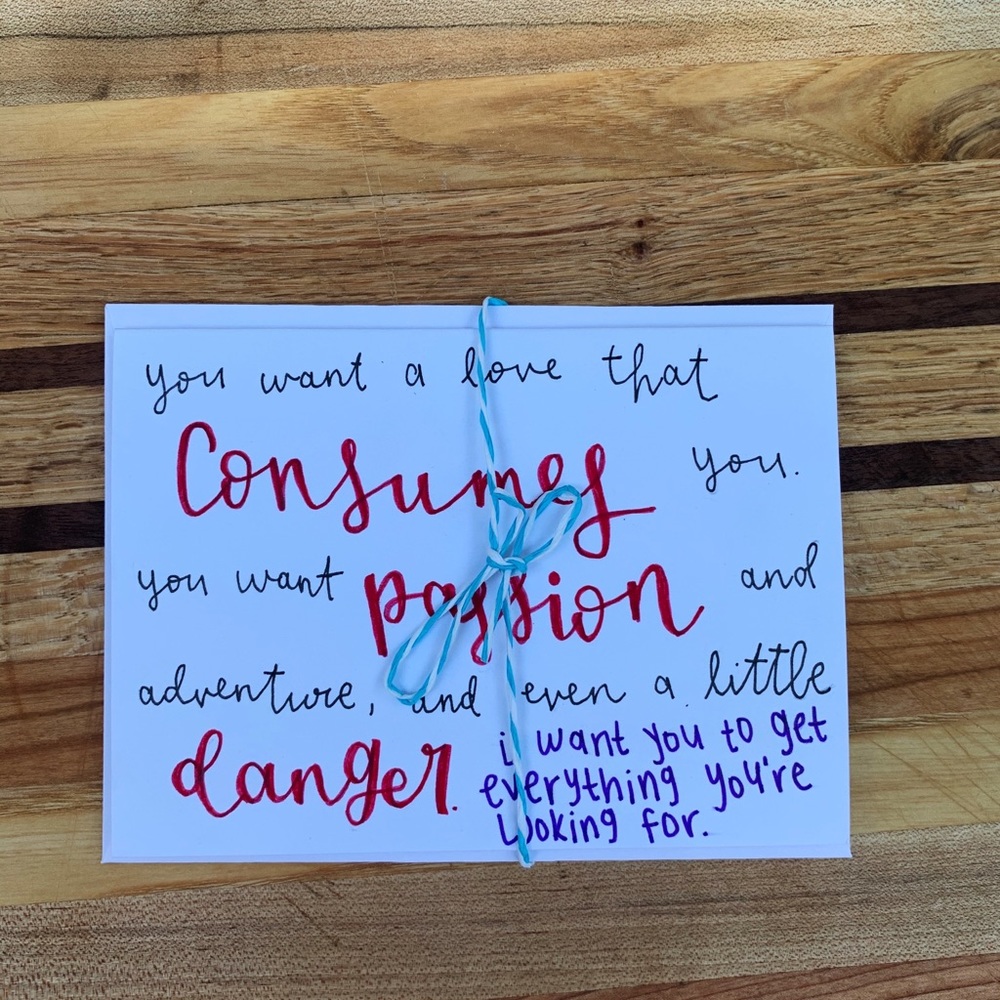 you want a love that
Consumes you.
you want passion and
adventure, and even a little
danger. i want you to get
everything you're
looking for.